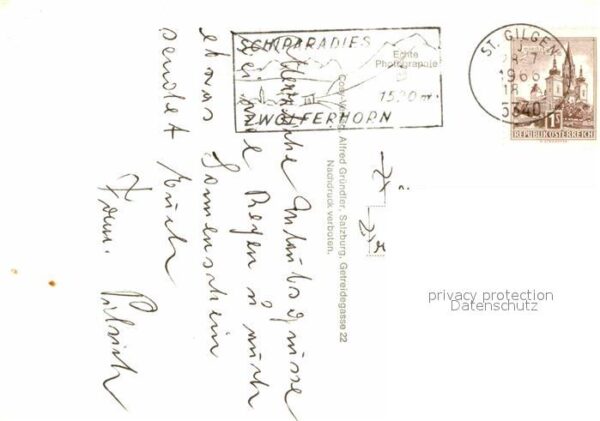 SCHIPARADIES
1520 m
ZWÖLFERHORN
ST. GILGEN
1966
18
5340
1S
REPUBLIK ÖSTERREICH
Echte
Photographie
Cosy-Verlag, Alfred Gründler, Salzburg, Getreidegasse 22
Nachdruck verboten.
Herzliche Urlaubsgrüsse
bei viel Regen u. auch
etwas Sonnenschein
sendet Euch
Fam.
privacy protection
Datenschutz